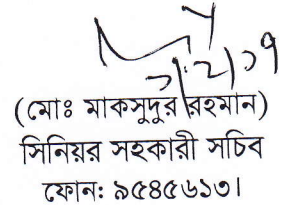 (মোঃ মাকসুদুর রহমান)
সিনিয়র সহকারী সচিব
ফোন: ৯৫৪৫৬১৩।